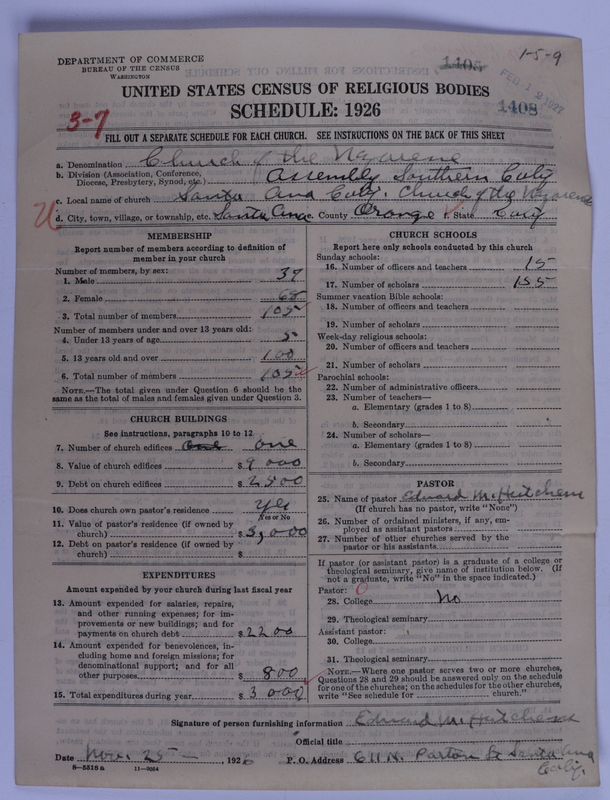 DEPARTMENT OF COMMERCE
BUREAU OF THE CENSUS
WASHINGTON
1405
1-5-9
FEB 12 1927
UNITED STATES CENSUS OF RELIGIOUS BODIES
1408
SCHEDULE: 1926
3-7
FILL OUT A SEPARATE SCHEDULE FOR EACH CHURCH. SEE INSTRUCTIONS ON THE BACK OF THIS SHEET
a. Denomination Church of the Nazarene
b. Division (Association, Conference, Diocese, Presbytery, Synod, etc.) Assembly Southern Calif
c. Local name of church Santa Ana Calif. Church of the Nazarene
U d. City, town, village, or township, etc. Santa Ana e. County Orange f. State Calif
MEMBERSHIP
Report number of members according to definition of
member in your church
Number of members, by sex:
1. Male 39
2. Female
3. Total number of members 105
Number of members under and over 13 years old:
4. Under 13 years of age 5
5. 13 years old and over 100
6. Total number of members 105
NOTE.—The total given under Question 6 should be the
same as the total of males and females given under Question 3.
CHURCH BUILDINGS
See instructions, paragraphs 10 to 12
7. Number of church edifices one one
8. Value of church edifices $ 9000
9. Debt on church edifices $ 2500
10. Does church own pastor's residence yes
Yes or No
11. Value of pastor's residence (if owned by
church) $ 3,000
12. Debt on pastor's residence (if owned by
church) $
EXPENDITURES
Amount expended by your church during last fiscal year
13. Amount expended for salaries, repairs,
and other running expenses; for im-
provements or new buildings; and for
payments on church debt $ 2200
14. Amount expended for benevolences, in-
cluding home and foreign missions; for
denominational support; and for all
other purposes $ 800
15. Total expenditures during year $ 3000
CHURCH SCHOOLS
Report here only schools conducted by this church
Sunday schools:
16. Number of officers and teachers 15
17. Number of scholars 155
Summer vacation Bible schools:
18. Number of officers and teachers
19. Number of scholars
Week-day religious schools:
20. Number of officers and teachers
21. Number of scholars
Parochial schools:
22. Number of administrative officers
23. Number of teachers—
a. Elementary (grades 1 to 8)
b. Secondary
24. Number of scholars—
a. Elementary (grades 1 to 8)
b. Secondary
PASTOR
25. Name of pastor Edward M. Hutchens
(If church has no pastor, write "None")
26. Number of ordained ministers, if any, em-
ployed as assistant pastors
27. Number of other churches served by the
pastor or his assistants
If pastor (or assistant pastor) is a graduate of a college or
theological seminary, give name of institution below. (If
not a graduate, write "No" in the space indicated.)
Pastor:
28. College No
29. Theological seminary
Assistant pastor:
30. College
31. Theological seminary
NOTE.—Where one pastor serves two or more churches,
Questions 28 and 29 should be answered only on the schedule
for one of the churches; on the schedules for the other churches,
write "See schedule for church."
Signature of person furnishing information Edward M. Hutchens
Official title
Date Nov. 25 — , 1926 P. O. Address 611 N. Parton St Santa Ana
Calif.
8-5318a 11-9064